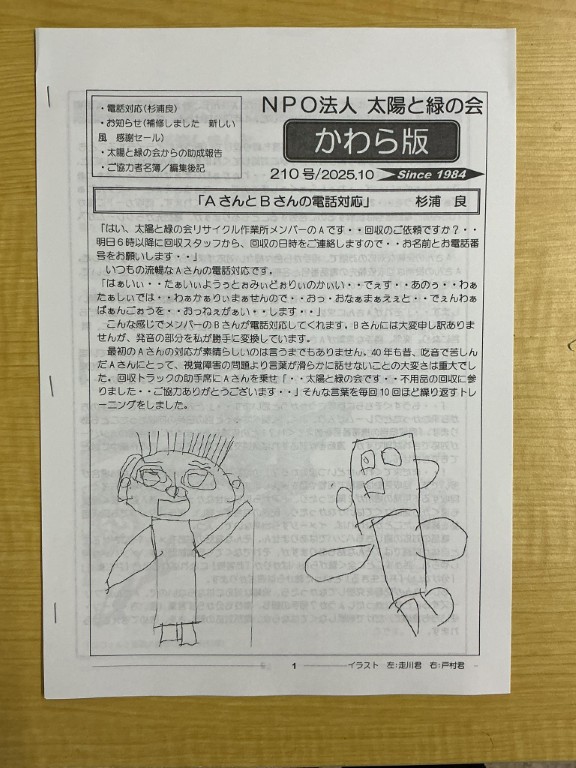 ・電話対応(杉浦良)
・お知らせ(補修しました　新しい
風　感謝セール)
・太陽と緑の会からの助成報告
・ご協力者名簿/編集後記
NPO法人 太陽と緑の会
かわら版
210号/2025.10 Since 1984
「AさんとBさんの電話対応」　杉浦　良
「はい、太陽と緑の会リサイクル作業所メンバーのAです・・回収のご依頼ですか？・・
明日6時以降に回収スタッフから、回収の日時をご連絡しますので・・お名前とお電話番
号をお願いします・・」
いつもの流暢なAさんの電話対応です。
「はぁいぃ・・たぁいぃようぅとぉみぃどぉりぃのかぃい・・でぇす・・あのぅ・・わぁ
たぁしぃでは・・わぁかぁりぃまぁせんので・・おっ・おなぁまぁえぇと・・でぇんわぁ
ばぁんごぅを・・おっねぇがぁい・・します・・」
こんな感じでメンバーのBさんが電話対応してくれます。Bさんには大変申し訳ありま
せんが、発音の部分を私が勝手に変換しています。
最初のAさんの対応が素晴らしいのは言うまでもありません。40年も昔、吃音で苦しん
だAさんにとって、視覚障害の問題より言葉が滑らかに話せないことの大変さは重大でし
た。回収トラックの助手席にAさんを乗せ「・・太陽と緑の会です・・不用品の回収に参
りました・・ご協力ありがとうございます・・」そんな言葉を毎回10回ほど繰り返すトレ
ーニングをしました。
1
イラスト　左:走川君　右:戸村君